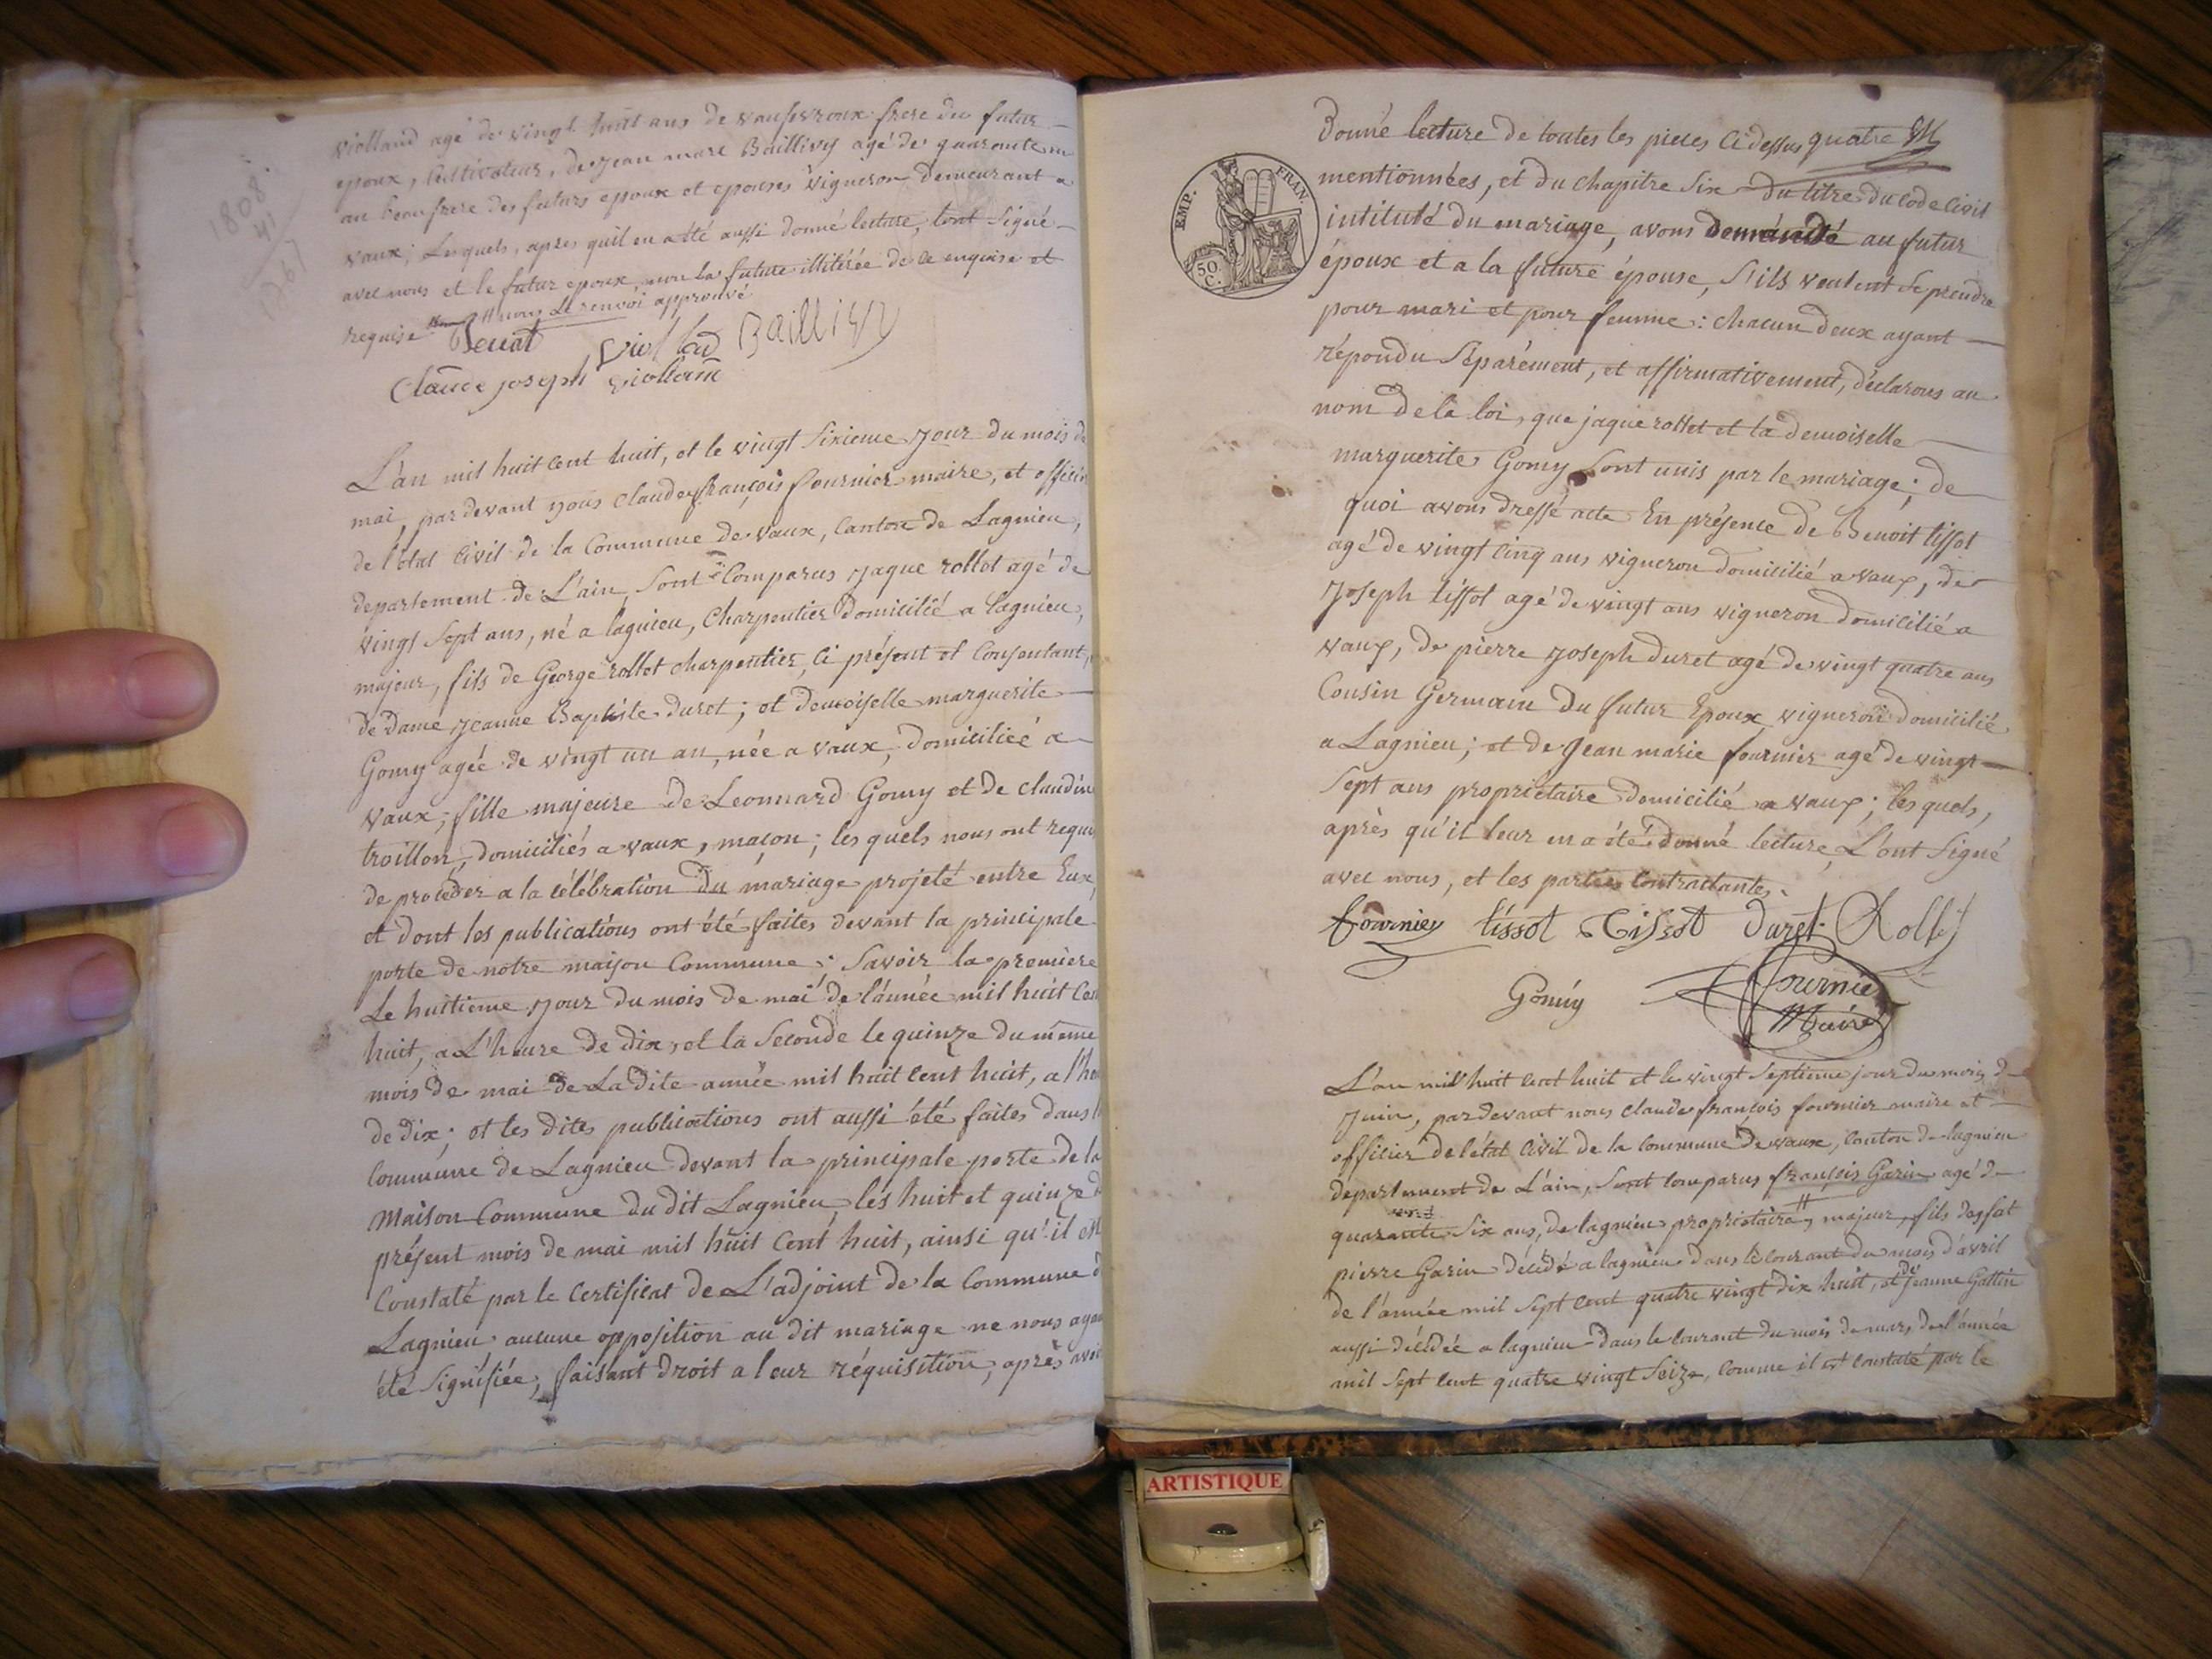 violland agé de vingt huit ans de vaufevroux frere du futur
epoux, Cultivateur, de jean marc Baillivy agé de quarante un
an beau frere des futurs epoux et epouses vigneron demeurant a
vaux; Lesquels, apres quil en a été aussi donné lecture, l'ont signé
avec nous et le futur epoux, non la future illitérée de ce enquise et
requise nous Le renvoi approuvé
Baillivy
Claude joseph violland
1808
41
L'an mil huit cent huit, et le vingt sixieme jour du mois de
mai, par devant nous claude françois fournier maire, et officier
de l'état civil de la Commune de vaux, canton de Lagnieu,
departement de L'ain, sont Comparus jaque rollet agé de
vingt sept ans, né a lagnieu, Charpentier domicilié a lagnieu,
majeur, fils de George rollet charpentier, ci présent et Consentant,
de dame jeanne Baptiste duret; et demoiselle marguerite
Gomy agée de vingt un an, née a vaux, domiciliée a
vaux; fille majeure de Leonnard Gomy et de claudine
troillon, domiciliés a vaux, maçon; les quels nous ont requis
de procéder a la célébration du mariage projeté entre Eux,
et dont les publications ont été faites devant la principale
porte de notre maison Commune: Savoir la premiere
Le huitieme jour du mois de mai de l'année mil huit Cent
huit, a L'heure de dix, et la Seconde le quinze du même
mois de mai de La dite année mil huit Cent huit, a l'heure
de dix; et les dites publications ont aussi été faites dans la
Commune de Lagnieu devant la principale porte de la
Maison Commune du dit Lagnieu, les huit et quinze du
présent mois de mai mil huit Cent huit, ainsi qu'il est
Constaté par le Certificat de L'adjoint de la Commune de
Lagnieu aucune opposition au dit mariage ne nous ayant
été signifiée, faisant droit a leur réquisition, après avoir
Donné lecture de toutes les pieces Ci dessus quatre M
EMP. FRAN.
50 C.
mentionnées, et du chapitre Six du titre du Code Civil
intitulé du mariage, avons demandé au futur
époux et a la future épouse, s'ils veulent se prendre
pour mari et pour femme: chacun deux ayant
répondu Séparément, et affirmativement, déclarons au
nom de la loi, que jaque rollet et la demoiselle
marguerite Gomy Sont unis par le mariage; de
quoi avons dressé acte En présence de Benoit tissot
agé de vingt cinq ans vigneron domicilié a vaux, de
Joseph tissot agé de vingt ans vigneron domicilié a
vaux, de pierre joseph duret agé de vingt quatre ans
Cousin Germain du futur Epoux vigneron domicilié
a Lagnieu; et de Jean marie fournier agé de vingt
Sept ans propriétaire domicilié a vaux; les quels,
après qu'il leur en a été donné lecture, L'ont signé
avec nous, et les parties Contractantes.
fournier tissot Tissot duret Rollet
Gomy fournier
Maire
L'an mil huit cent huit et le vingt septieme jour du mois de
juin, pardevant nous claude françois fournier maire et
officier de l'etat Civil de la Commune de vaux, canton de lagnieu
departement de L'ain, Sont Comparus françois Garin agé de
quarante Six ans, de lagnieu propriétaire, majeur, fils de fut
pierre Garin décédé a lagnieu dans le courant du mois d'avril
de l'année mil Sept Cent quatre vingt dix huit, et de jeanne Gallin
aussi décédée a lagnieu dans le Courant du mois de mars de l'année
mil Sept Cent quatre vingt Seize, Comme il est Constaté par le
ARTISTIQUE